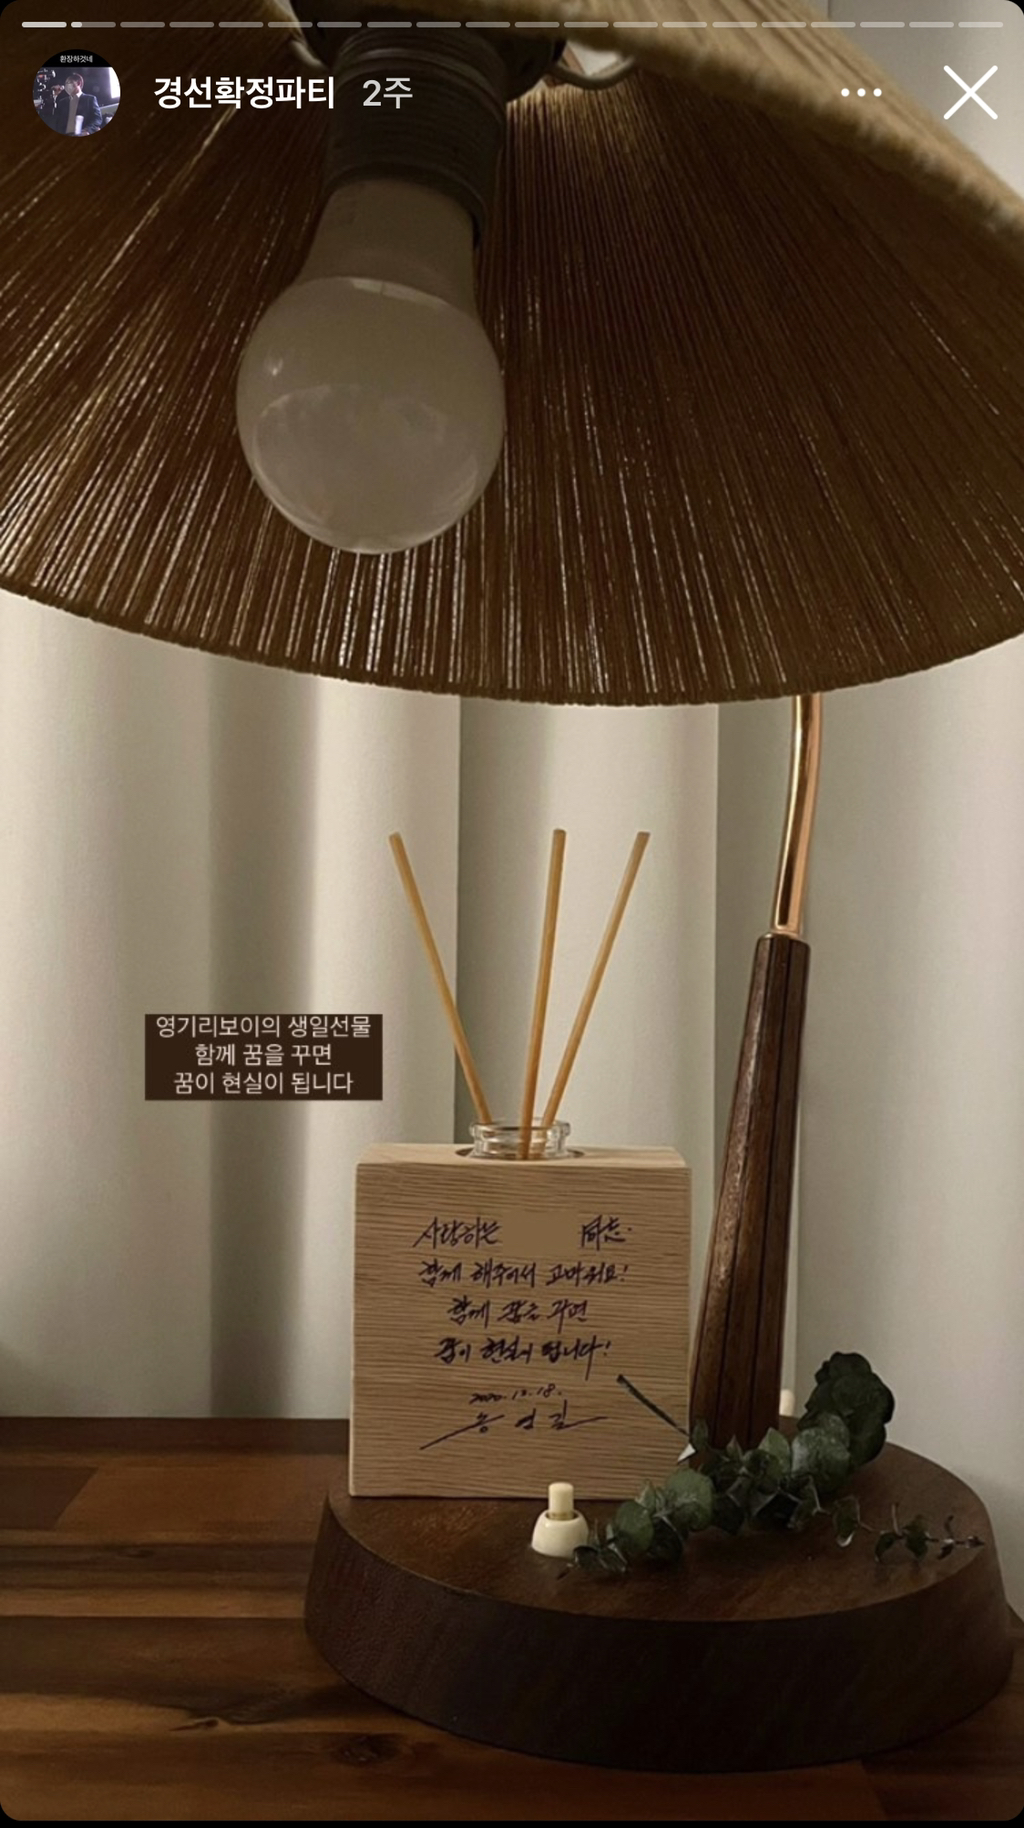 환장하것네
경선확정파티 2주
영기리보이의 생일선물
함께 꿈을 꾸면
꿈이 현실이 됩니다
사랑하는 同志.
함께 해주어서 고마워요!
함께 꿈을 꾸면
꿈이 현실이 됩니다!
송영길